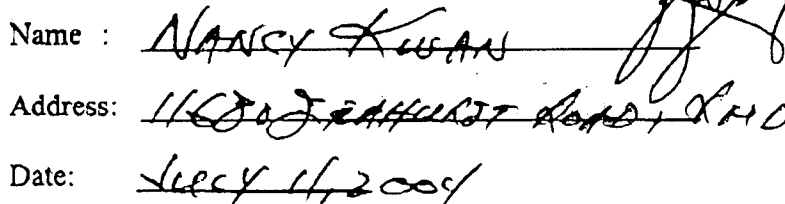 Name : NANCY KWAN
Address: 11680 SEAHURST ROAD, RMD
Date: JULY 11, 2004